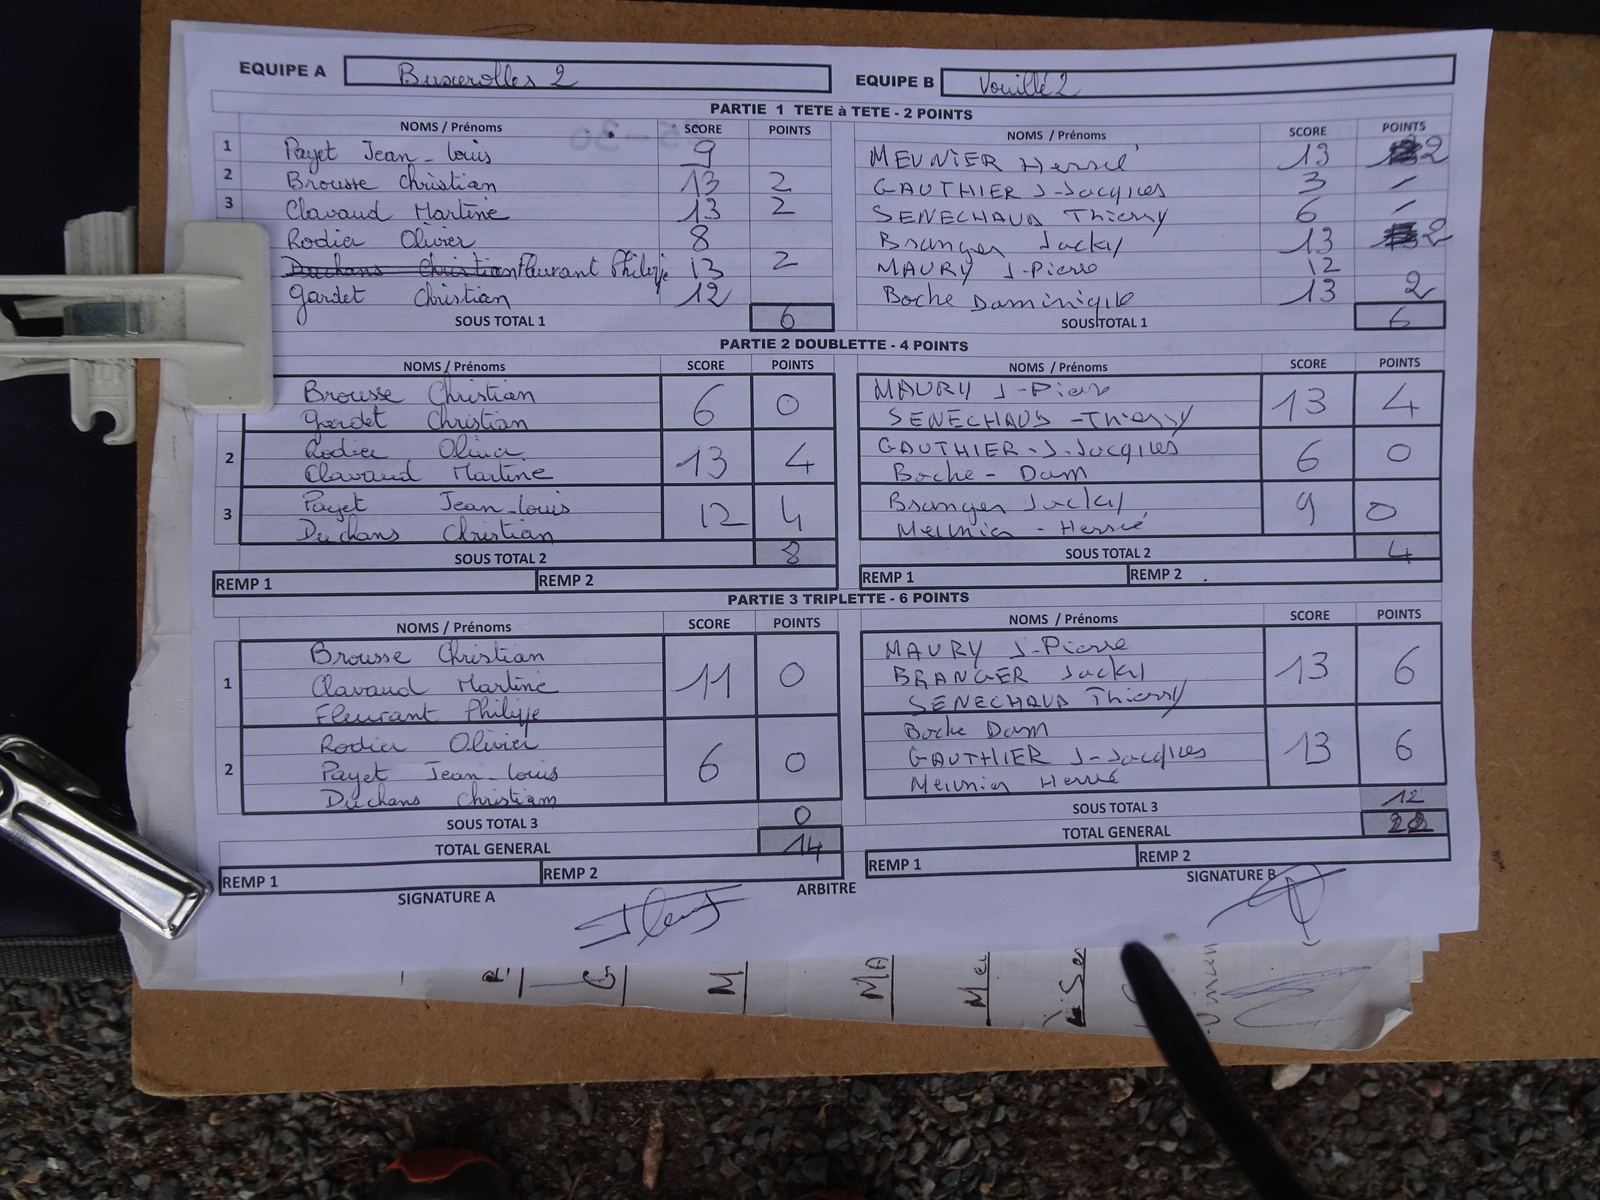 EQUIPE A Buxerolles 2 EQUIPE B Vouillé 2
PARTIE 1 TETE à TETE - 2 POINTS
NOMS / Prénoms SCORE POINTS NOMS / Prénoms SCORE POINTS
1 Payet Jean-Louis 9 MEUNIER Hervé 13 2
2 Brousse Christian 13 2 GAUTHIER J-Jacques 3 /
3 Clavaud Martine 13 2 SENECHAUD Thierry 6 /
Rodier Olivier 8 Branger Jacky 13 2
Duchans Christian Fleurant Philippe 13 2 MAURY J-Pierre 12
Gardet Christian 12 Boche Dominique 13 2
SOUS TOTAL 1 6 SOUS TOTAL 1 6
PARTIE 2 DOUBLETTE - 4 POINTS
NOMS / Prénoms SCORE POINTS NOMS / Prénoms SCORE POINTS
Brousse Christian 6 0 MAURY J-Pierre 13 4
Gardet Christian SENECHAUD - Thierry
2 Rodier Olivier 13 4 GAUTHIER - J-Jacques 6 0
Clavaud Martine Boche - Dom
3 Payet Jean-Louis 12 4 Branger Jacky 9 0
Duchans Christian Meunier - Hervé
SOUS TOTAL 2 8 SOUS TOTAL 2 4
REMP 1 REMP 2 REMP 1 REMP 2
PARTIE 3 TRIPLETTE - 6 POINTS
NOMS / Prénoms SCORE POINTS NOMS / Prénoms SCORE POINTS
Brousse Christian MAURY J-Pierre
1 Clavaud Martine 11 0 BRANGER Jacky 13 6
Fleurant Philippe SENECHAUD Thierry
Rodier Olivier Boche Dom
2 Payet Jean-Louis 6 0 GAUTHIER J-Jacques 13 6
Duchans Christian Meunier Hervé
SOUS TOTAL 3 0 SOUS TOTAL 3 12
TOTAL GENERAL 14 TOTAL GENERAL 22
REMP 1 REMP 2 REMP 1 REMP 2
SIGNATURE A ARBITRE SIGNATURE B